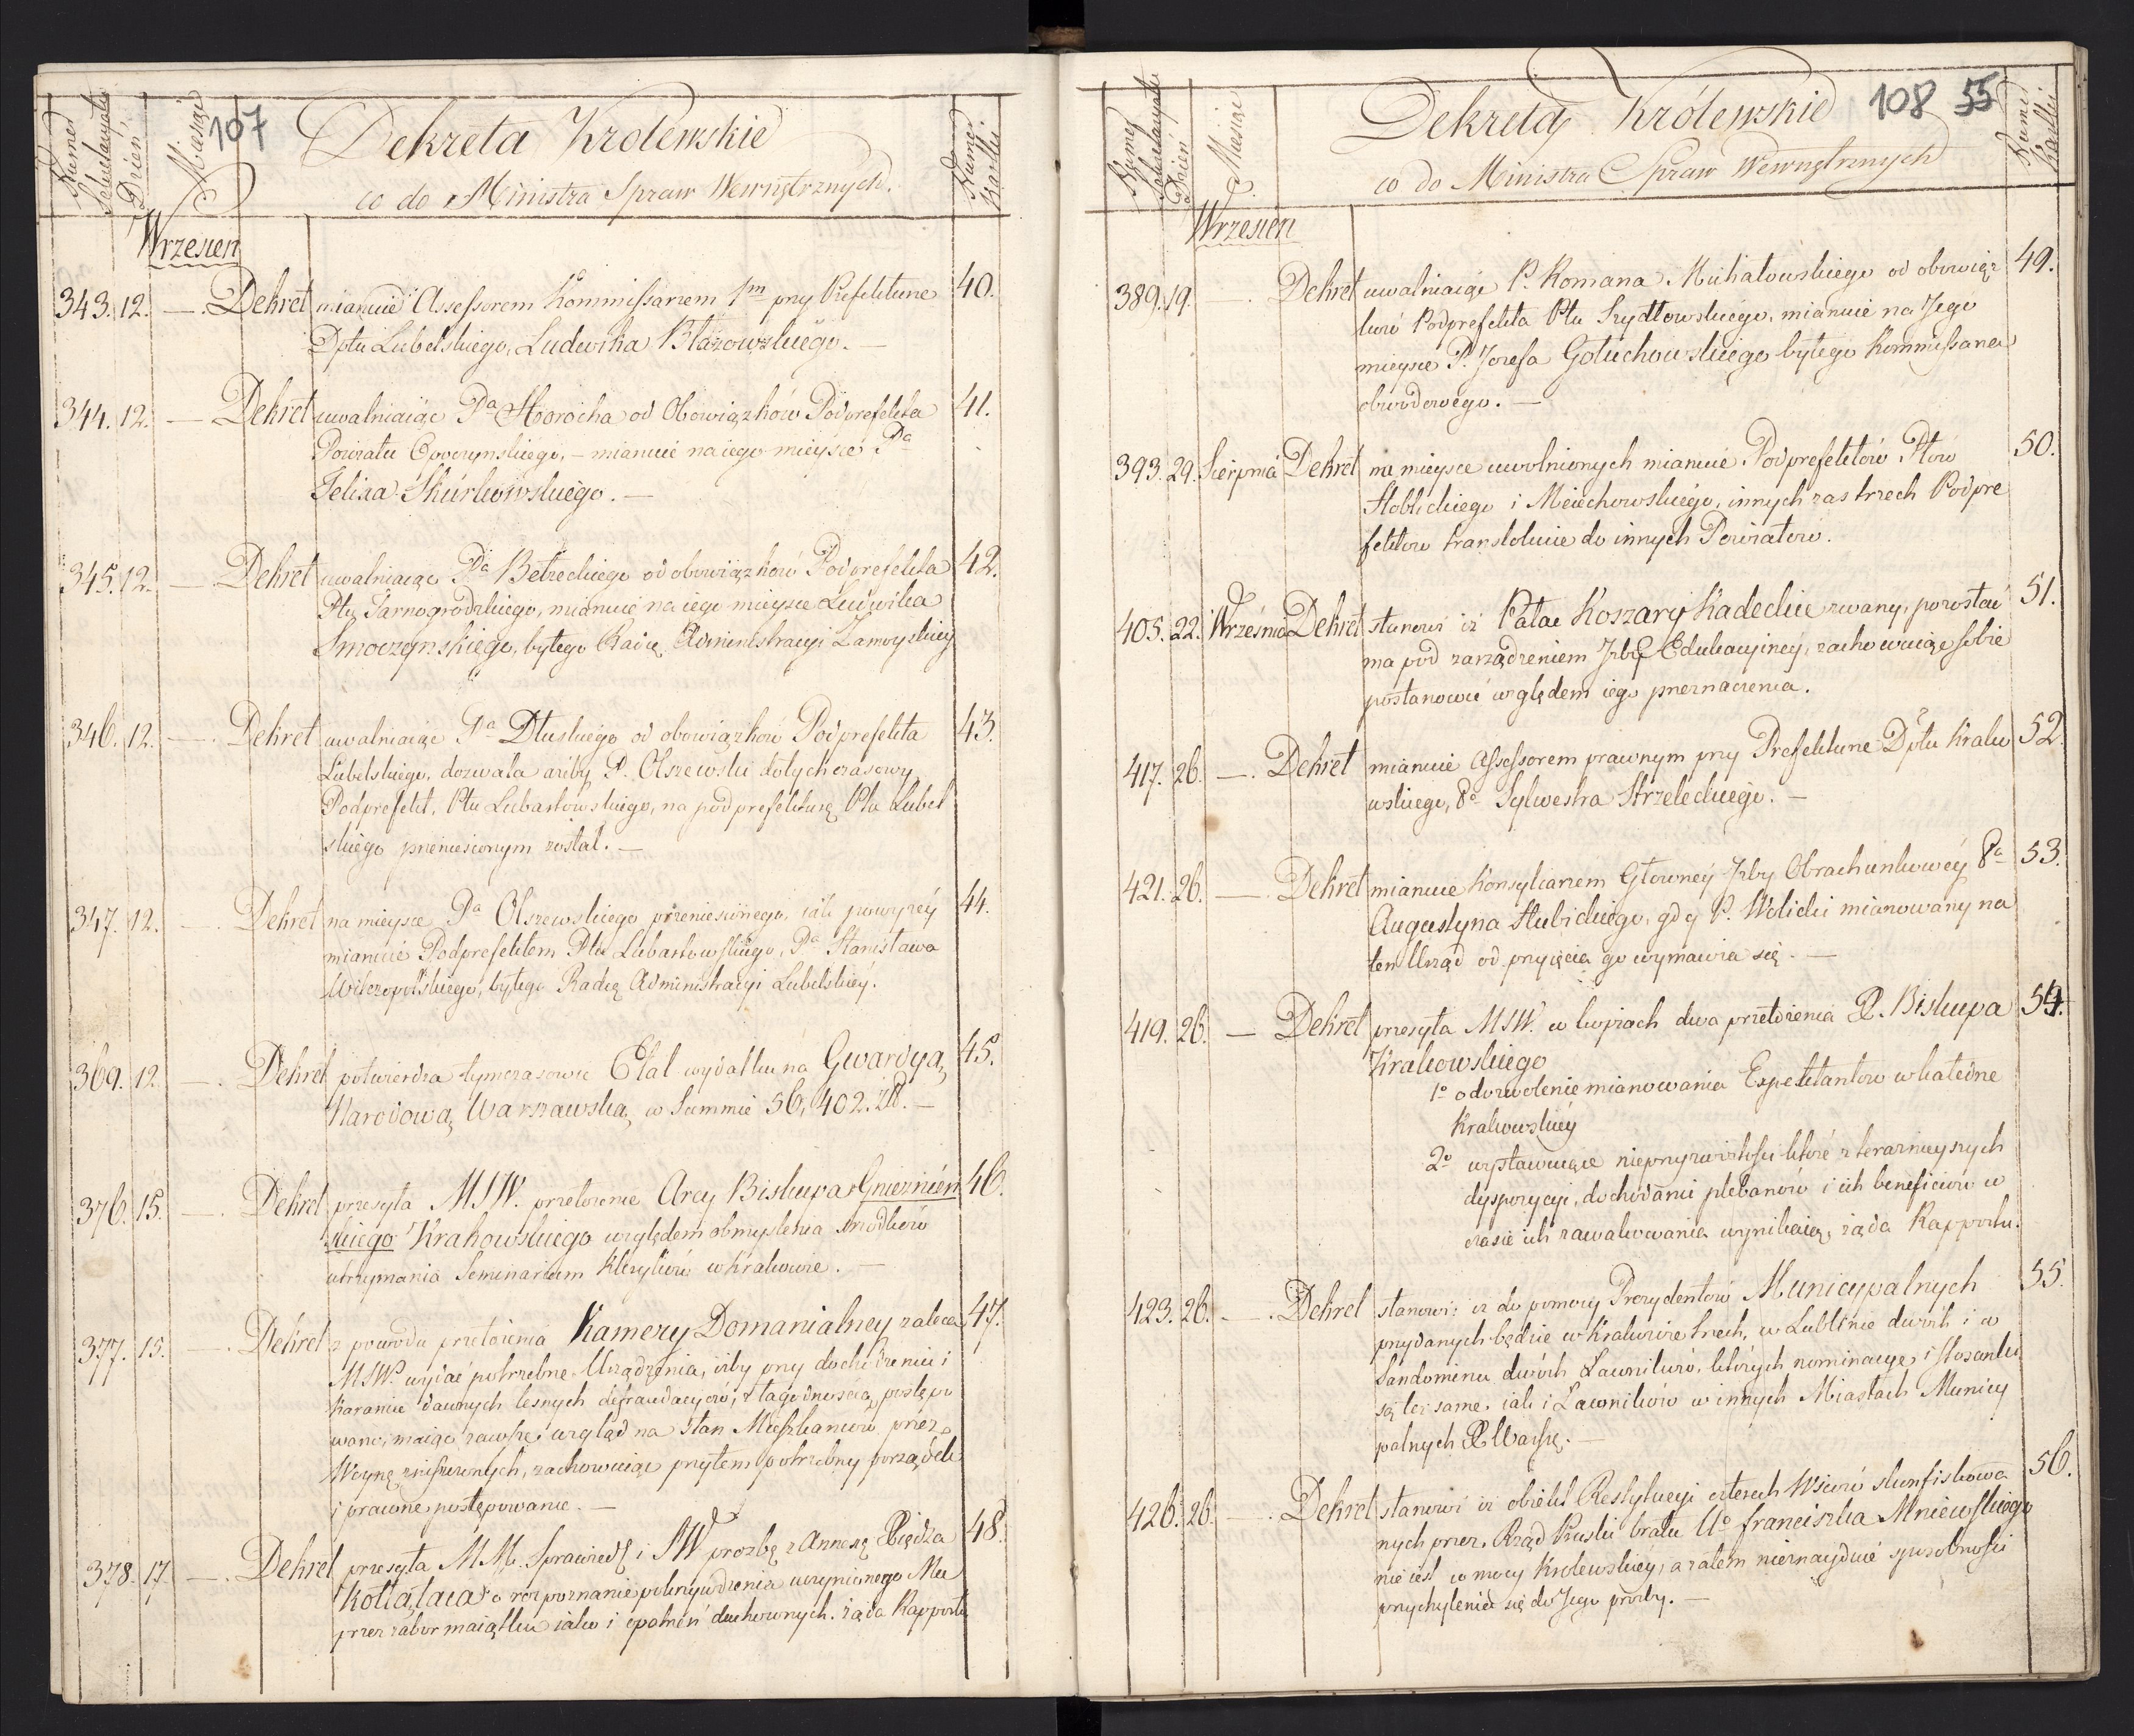 Numer Sekretaryatu
Dzień
Miesiąc
107
Dekreta Krolewskie
co do Ministra Spraw Wewnętrznych.
Numer Kartki
Wrzesień
343. 12. — Dekret mianuie Assessorem Kommissarzem 1m przy Prefekturze 40.
Dptu Lubelskiego, Ludwika Błazowskiego. —
344. 12. — Dekret uwalniaiąc Pa Horocha od Obowiązków Podprefekta 41.
Powiatu Opoczynskiego, — mianuie na iego mieysce Pa
Felixa Skurkowskiego. —
345. 12. — Dekret uwalniaiąc Pa Betreckiego od obowiązków Podprefekta 42.
Ptu Tarnogrodzkiego, mianuie na iego mieysce Ludwika
Smoczynskiego, byłego Radcę Administracyi Zamoyskiey
346. 12. — Dekret uwalniaiąc Pa Dłuskiego od obowiązków Podprefekta 43.
Lubelskiego, dozwala ażeby P. Olszewski dotychczasowy
Podprefekt, Ptu Lubartowskiego, na podprefekturę Ptu Lubel
skiego przeniesionym został. —
347. 12. — Dekret na mieysce Pa Olszewskiego przeniesionego, iak powyżey 44.
mianuie Podprefektem Ptu Lubartowskiego, Pa Stanisława
Wilczopolskiego, byłego Radcę Administracyi Lubelskiey.
369. 12. — Dekret potwierdza tymczasowie Etat wydatku na Gwardyą 45.
Narodową Warszawską w Summie 56,402. Złł. —
376. 15. — Dekret przesyła MSW. przełożenie Arcy Biskupa Gnieznień 46.
skiego Krakowskiego względem obmyslenia srodków
utrzymania Seminarium Kleryków w Krakowie. —
377. 15. — Dekret z powodu przełożenia Kamery Domanialney zaleca 47.
MSW. wydać potrzebne Urządzenia, iżby przy dochodzeniu i
karaniu dawnych lesnych defraudacyów, z łagodnoscią postępo
wano, maiąc zawsze wzgląd na stan Mieszkancow przez
Woynę zniszczonych, zachowuiąc przytem potrzebny porządek
i prawne postępowanie. —
378. 17. — Dekret przesyła MM. Sprawiedł i SW prozbę z Annexą Xiędza 48.
Kołłątaia o rozpoznanie pokrzywdzenia uczynionego Mu
przez zabor maiątku iako i epolneń duchownych. żąda Rapportu
Numer Sekretaryatu
Dzień
Miesiąc
Dekreta Królewskie 108 55
co do Ministra Spraw Wewnętrznych
Numer Kartki
Wrzesień
389. 19. — Dekret uwalniaiąc P. Romana Michałowskiego od obowiąz 49.
ków Podprefekta Ptu Szydłowskiego, mianuie na Jego
mieysce P. Jozefa Gołuchowskiego byłego Kommissarza
obwodowego. —
393. 29. Sierpnia Dekret na mieysce uwolnionych mianuie Podprefektów Ptów 50.
Stobnickiego i Miechowskiego, innych zas trzech Podpre
fektow translokuie do innych Powiatow.
405. 22. Września Dekret stanowi iż Pałac Koszary Kadeckie zwany, pozostać 51.
ma pod zarządzeniem Izby Edukacyiney, zachowuiąc sobie
postanowić względem iego przeznaczenia.
417. 26. — Dekret mianuie Assessorem prawnym przy Prefekturze Dptu Krako 52.
wskiego, Pa Sylwestra Strzeleckiego. —
421. 26. — Dekret mianuie Konsyliarzem Głowney Izby Obrachunkowéy Pa 53.
Augustyna Słubickiego, gdy P. Wolicki mianowany na
ten Urząd od przyięcia go wymawia się. —
419. 26. — Dekret przesyła MSW. w kopiach dwa przełożenia X. Biskupa 54.
Krakowskiego
1o o dozwolenie mianowania Expektantow w katedrze
Krakowskiey
2o wystawuiące nieprzyzwoitości które z terazniejszych
dyspozycyi, dochodami plebanów i ich beneficiow w
czasie ich zawakowania wynikaią, żąda Rapportu.
423. 26. — Dekret stanowi: iż do pomocy Prezydentów Municypalnych 55.
przydanych będzie w Krakowie trzech, w Lublinie dwóch i w
Sandomirzu dwóch Ławników, których nominacye i stosunki
są też same, iak i Ławników w innych Miastach Municy
palnych X. Warsz. —
426. 26. — Dekret stanowi iż obiekt Restytucyi czterech Wsiów skonfiskowa 56.
nych przez Rząd Pruski bratu Uo franciszka Mniewskiego
nie iest w mocy Krolewskiey, a zatem nieznayduie sposobności
przychylenia się do Jego prozby. —